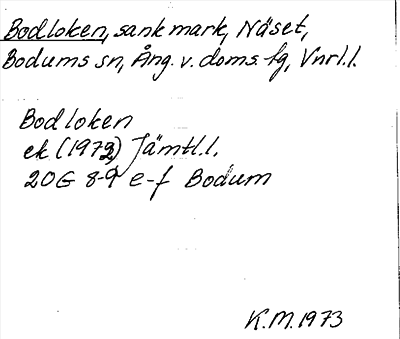 Bodloken, sank mark, Näset,
Bodums sn, Ång. v. doms-fg, Vnrl.l.
Bodloken
ek (1972) Jämtl.l.
20G 8-9 e-f Bodum
K.M. 1973